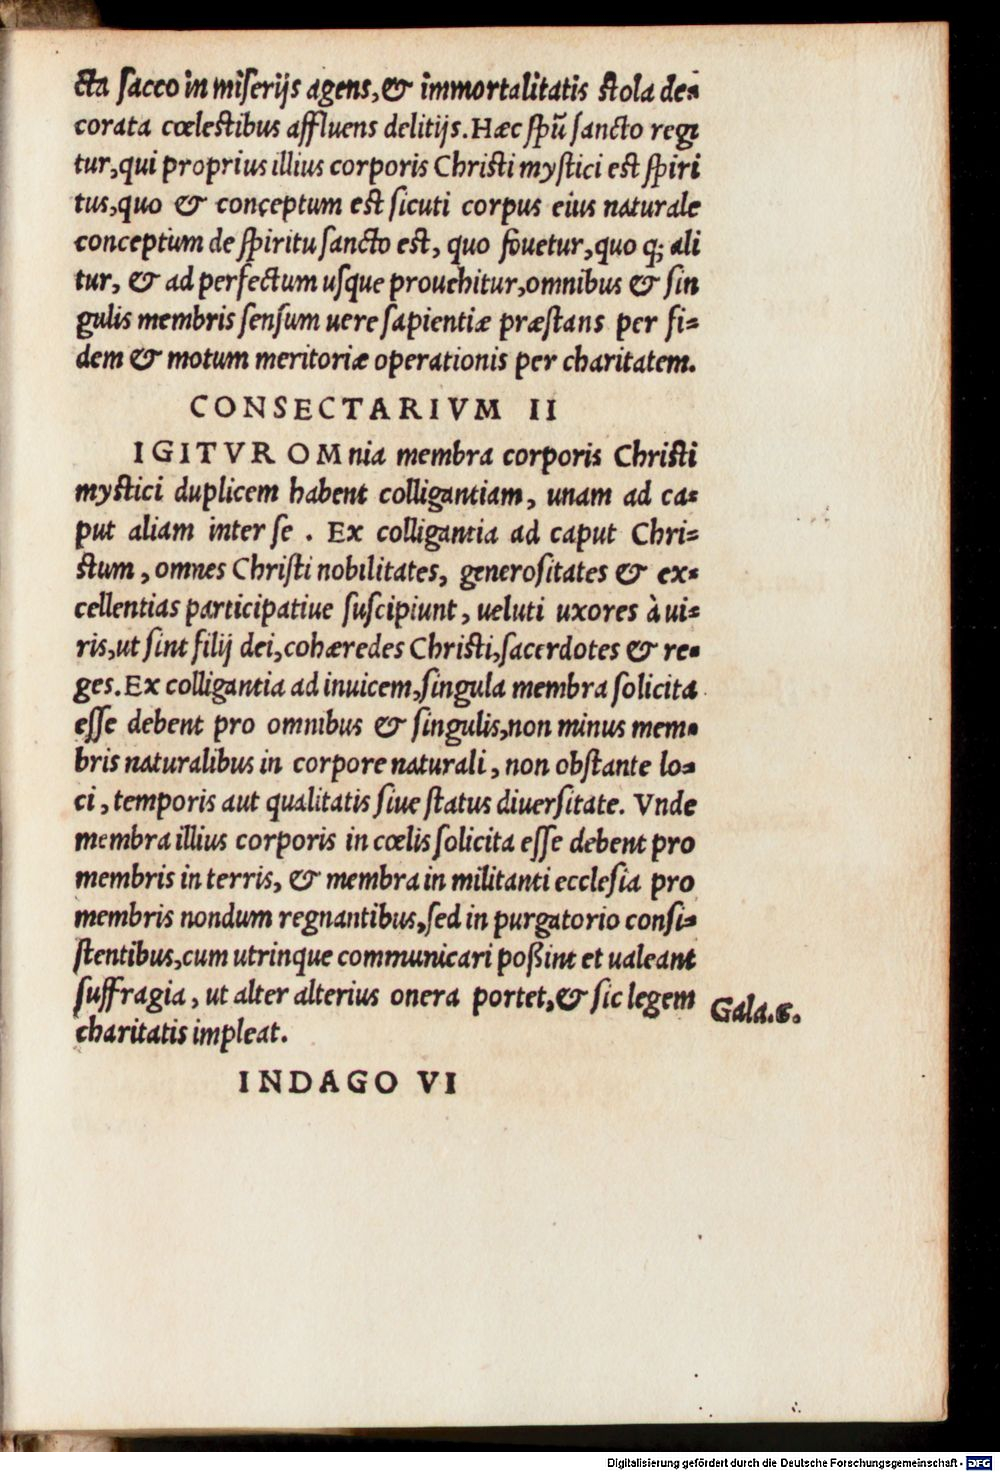 cta sacco in miserijs agens, & immortalitatis stola de-
corata cœlestibus affluens delitijs. Hæc spũ sancto regi
tur, qui proprius illius corporis Christi mystici est spiri
tus, quo & conceptum est sicuti corpus eius naturale
conceptum de spiritu sancto est, quo fouetur, quo q; ali
tur, & ad perfectum usque prouehitur, omnibus & sin
gulis membris sensum uere sapientiæ præstans per fi-
dem & motum meritoriæ operationis per charitatem.
CONSECTARIVM II
IGITVR OMnia membra corporis Christi
mystici duplicem habent colligantiam, unam ad ca-
put aliam inter se . Ex colligantia ad caput Chri-
stum, omnes Christi nobilitates, generositates & ex-
cellentias participatiue suscipiunt, ueluti uxores à ui-
ris, ut sint filij dei, cohæredes Christi, sacerdotes & re-
ges. Ex colligantia ad inuicem, singula membra solicita
esse debent pro omnibus & singulis, non minus mem-
bris naturalibus in corpore naturali, non obstante lo-
ci, temporis aut qualitatis siue status diuersitate. Vnde
membra illius corporis in cœlis solicita esse debent pro
membris in terris, & membra in militanti ecclesia pro
membris nondum regnantibus, sed in purgatorio consi-
stentibus, cum utrinque communicari poßint et ualeant
suffragia, ut alter alterius onera portet, & sic legem
charitatis impleat.
Gala.6.
INDAGO VI
Digitalisierung gefördert durch die Deutsche Forschungsgemeinschaft - DFG